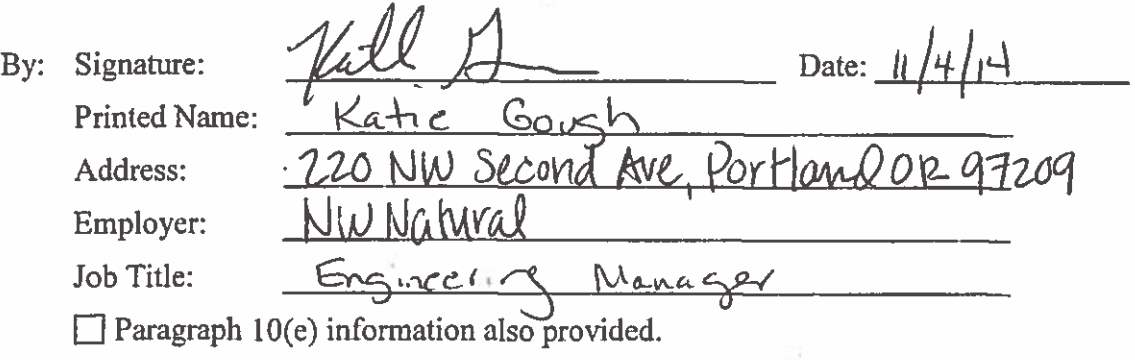 By: Signature: Date: 11/4/14
Printed Name: Katie Gough
Address: 220 NW Second Ave, Portland OR 97209
Employer: NW Natural
Job Title: Engineering Manager
☐ Paragraph 10(e) information also provided.